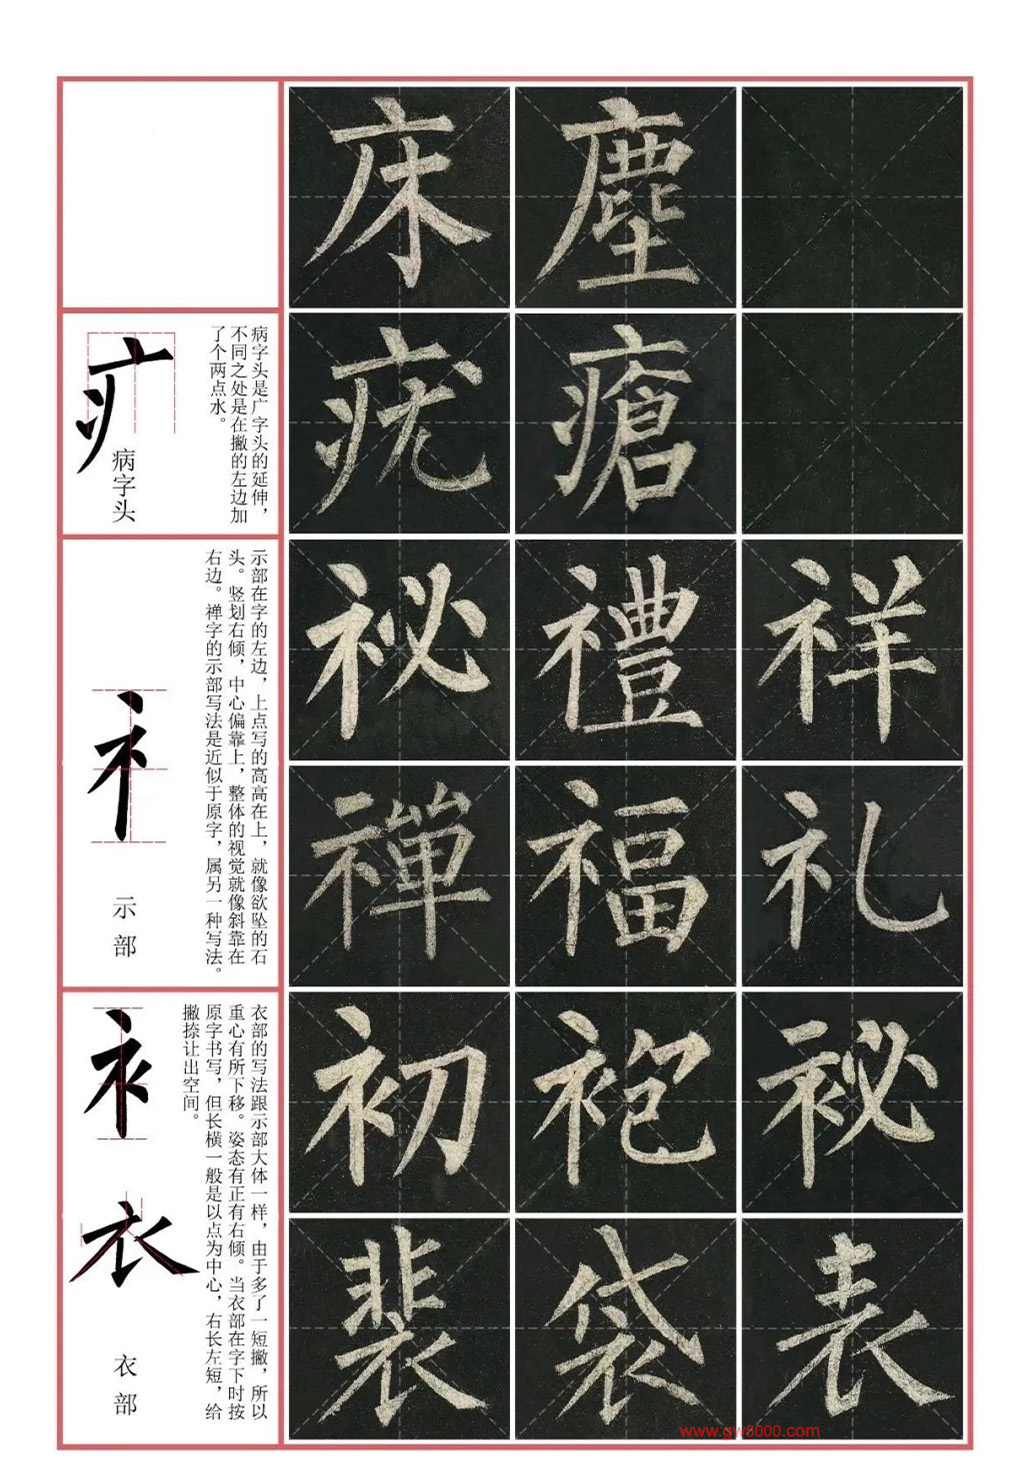 床 塵
病字头是广字头的延伸，
不同之处是在撇的左边加
了个两点水。
疒
病字头
疣 瘡
示部在字的左边，上点写的高高在上，就像欲坠的石
头。竖划右倾，中心偏靠上，整体的视觉就像斜靠在
右边。禅字的示部写法是近似于原字，属另一种写法。
礻
示部
祕 禮 祥
禪 福 礼
衣部的写法跟示部大体一样，由于多了一短撇，所以
重心有所下移。姿态有正有右倾。当衣部在字下时按
原字书写，但长横一般是以点为中心，右长左短，给
撇捺让出空间。
衤
衣
衣部
初 袍 袐
裴 袋 表
www.gw8000.com